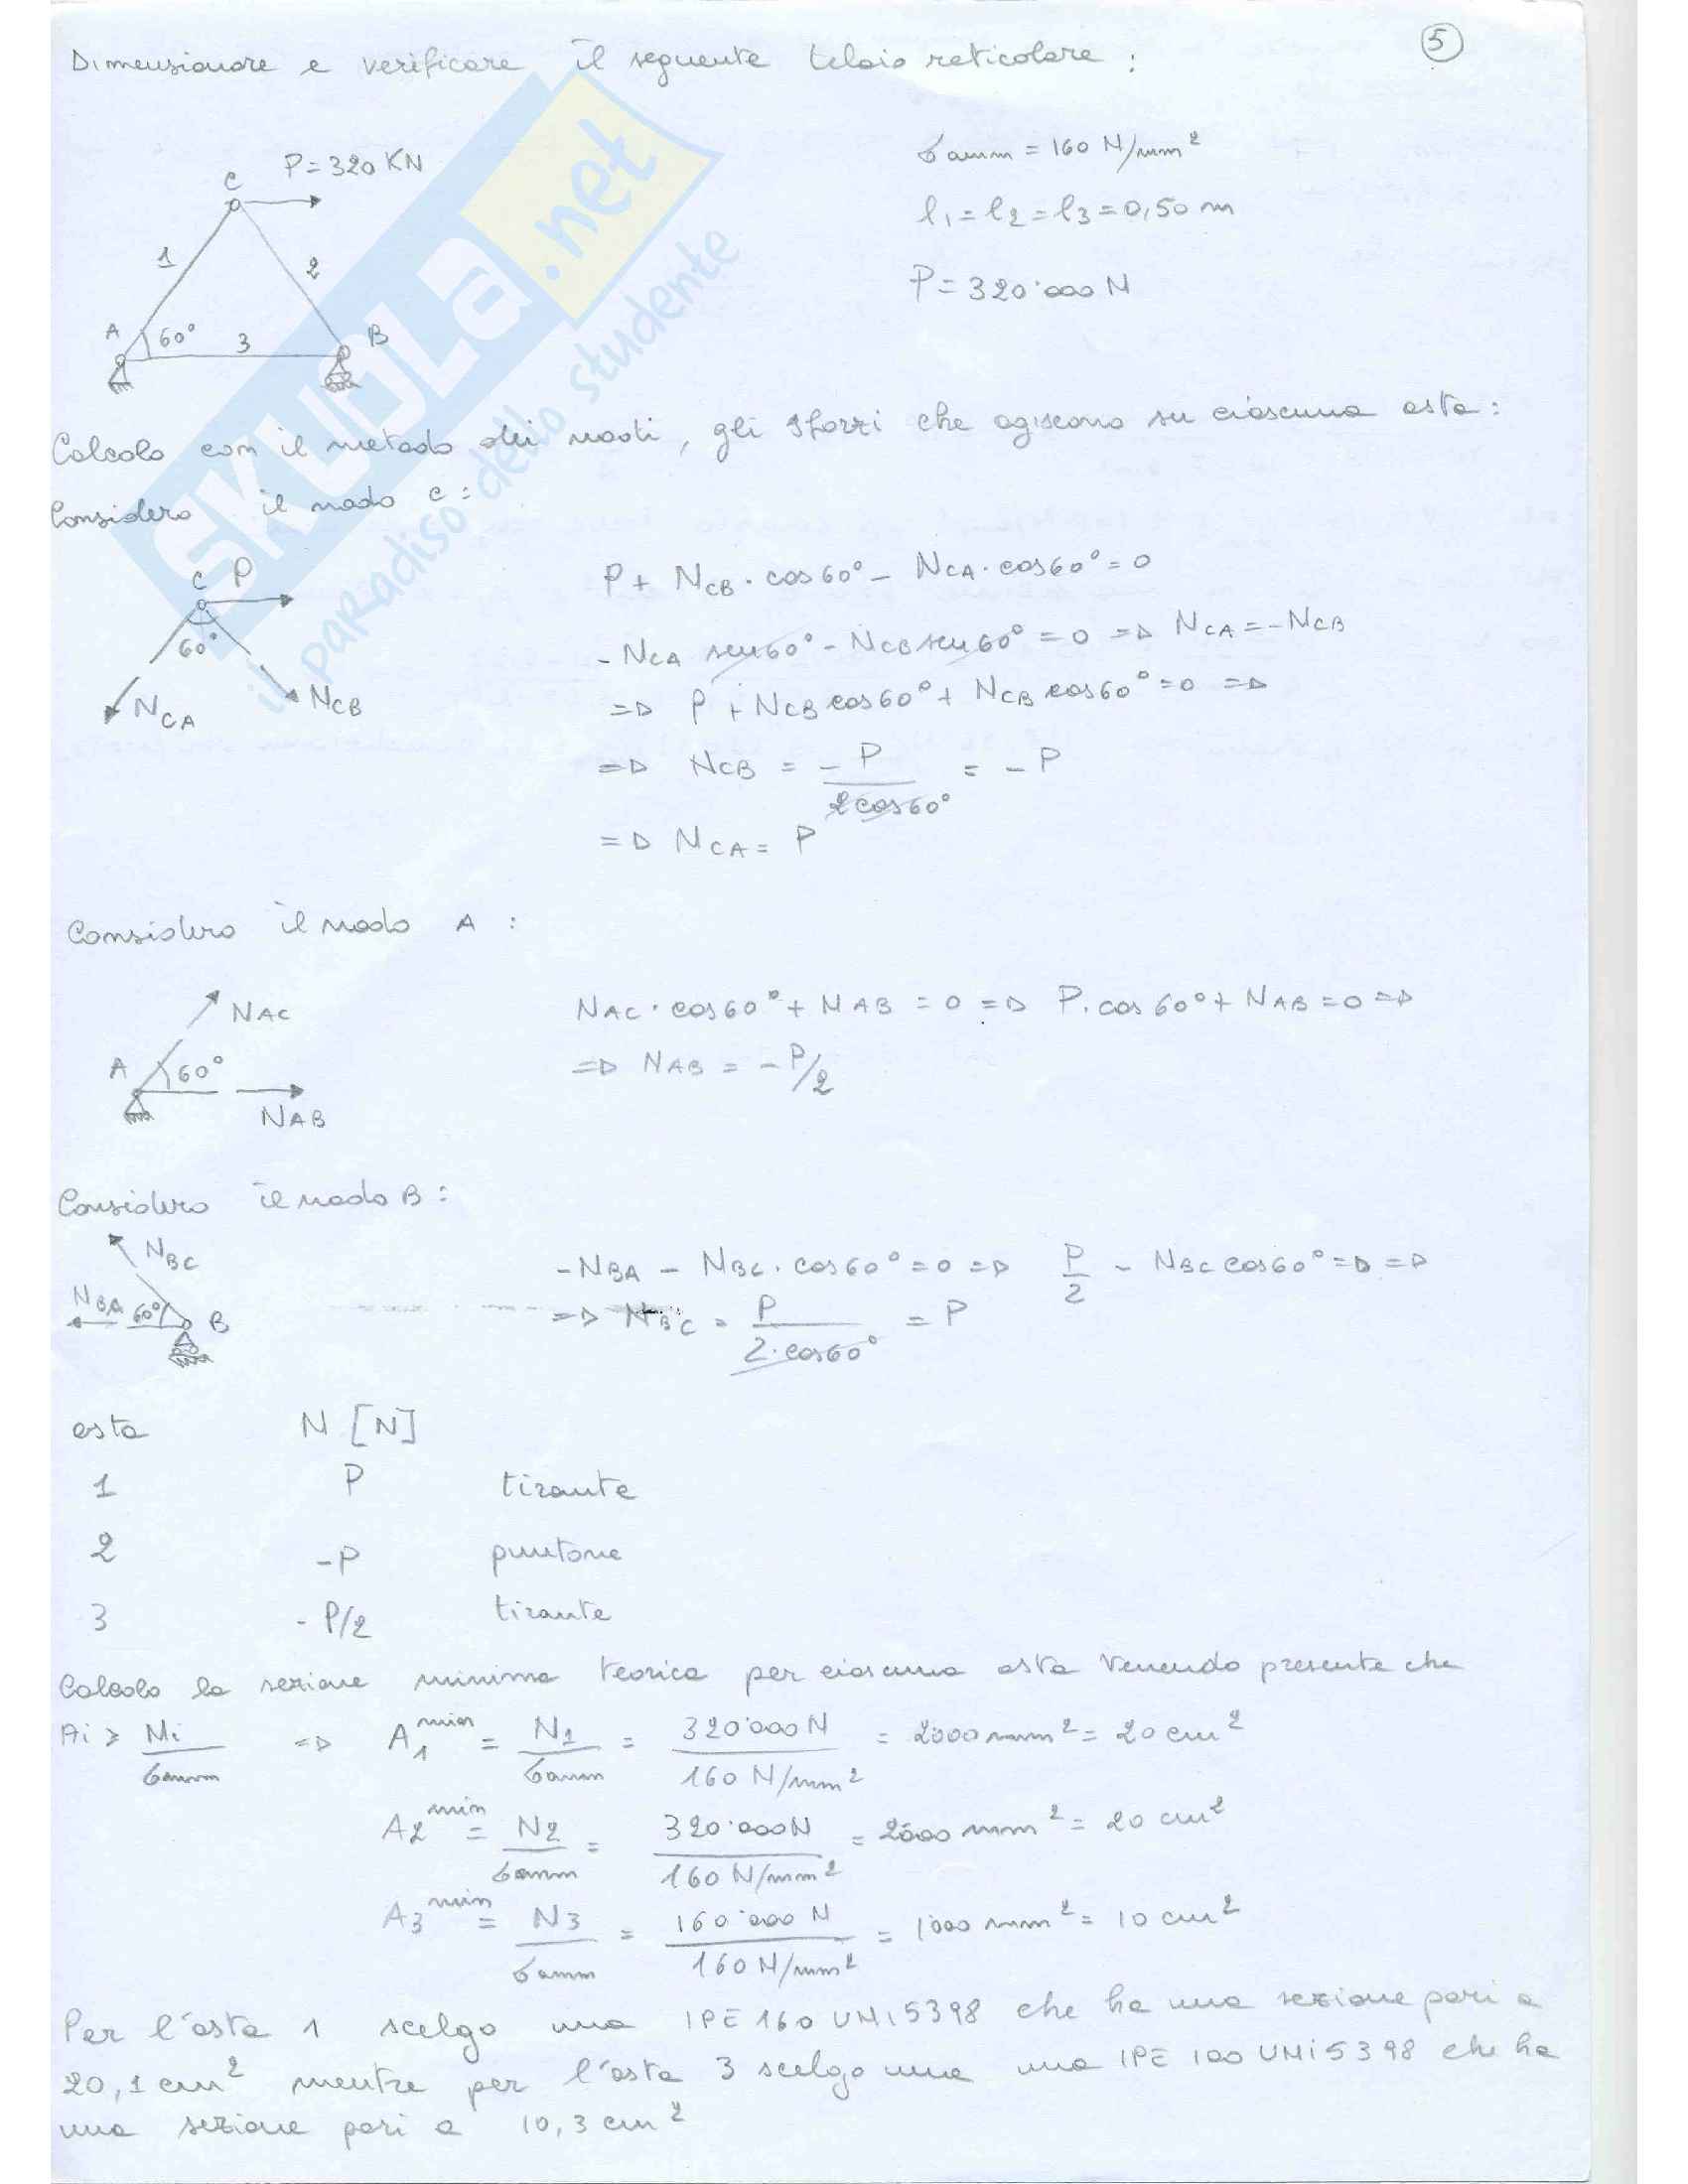 5
Dimensionare e verificare il seguente telaio reticolare :
P = 320 KN
C
1
2
A
60°
3
B
σamm = 160 N/mm²
l₁ = l₂ = l₃ = 0,50 m
P = 320'000 N
SKUOLA.net
il paradiso dello studente
Calcolo con il metodo dei nodi, gli sforzi che agiscono su ciascuna asta :
Considero il nodo C :
C P
60°
N_CA
N_CB
P + N_CB · cos60° - N_CA · cos60° = 0
- N_CA sen60° - N_CB sen60° = 0 => N_CA = - N_CB
=> P + N_CB cos60° + N_CB cos60° = 0 =>
=> N_CB = - P / 2cos60° = - P
=> N_CA = P
Considero il nodo A :
N_AC
A
60°
N_AB
N_AC · cos60° + N_AB = 0 => P · cos60° + N_AB = 0 =>
=> N_AB = - P/2
Considero il nodo B :
N_BC
N_BA
60°
B
- N_BA - N_BC · cos60° = 0 => P/2 - N_BC cos60° = 0 =>
=> N_BC = P / 2·cos60° = P
asta N [N]
1 P tirante
2 -P puntone
3 - P/2 tirante
Calcolo la sezione minima teorica per ciascuna asta tenendo presente che
Ai ≥ Ni / σamm => A₁^min = N₁ / σamm = 320'000 N / 160 N/mm² = 2000 mm² = 20 cm²
A₂^min = N₂ / σamm = 320'000 N / 160 N/mm² = 2000 mm² = 20 cm²
A₃^min = N₃ / σamm = 160'000 N / 160 N/mm² = 1'000 mm² = 10 cm²
Per l'asta 1 scelgo una IPE 160 UNI 5398 che ha una sezione pari a
20,1 cm² mentre per l'asta 3 scelgo una una IPE 100 UNI 5398 che ha
una sezione pari a 10,3 cm²